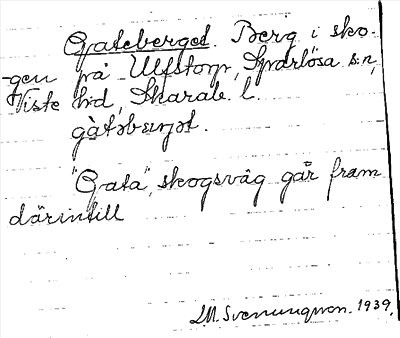 Gateberget. Berg i sko-
gen på Ulfstorp, Sparlösa sn,
Viste hd, Skarab. l.
gàtəbærjət.
"Gata", skogsväg går fram
därintill
L.M. Svenungsson. 1939.